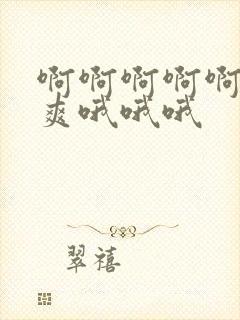 啊啊啊啊啊
爽哦哦哦
翠禧